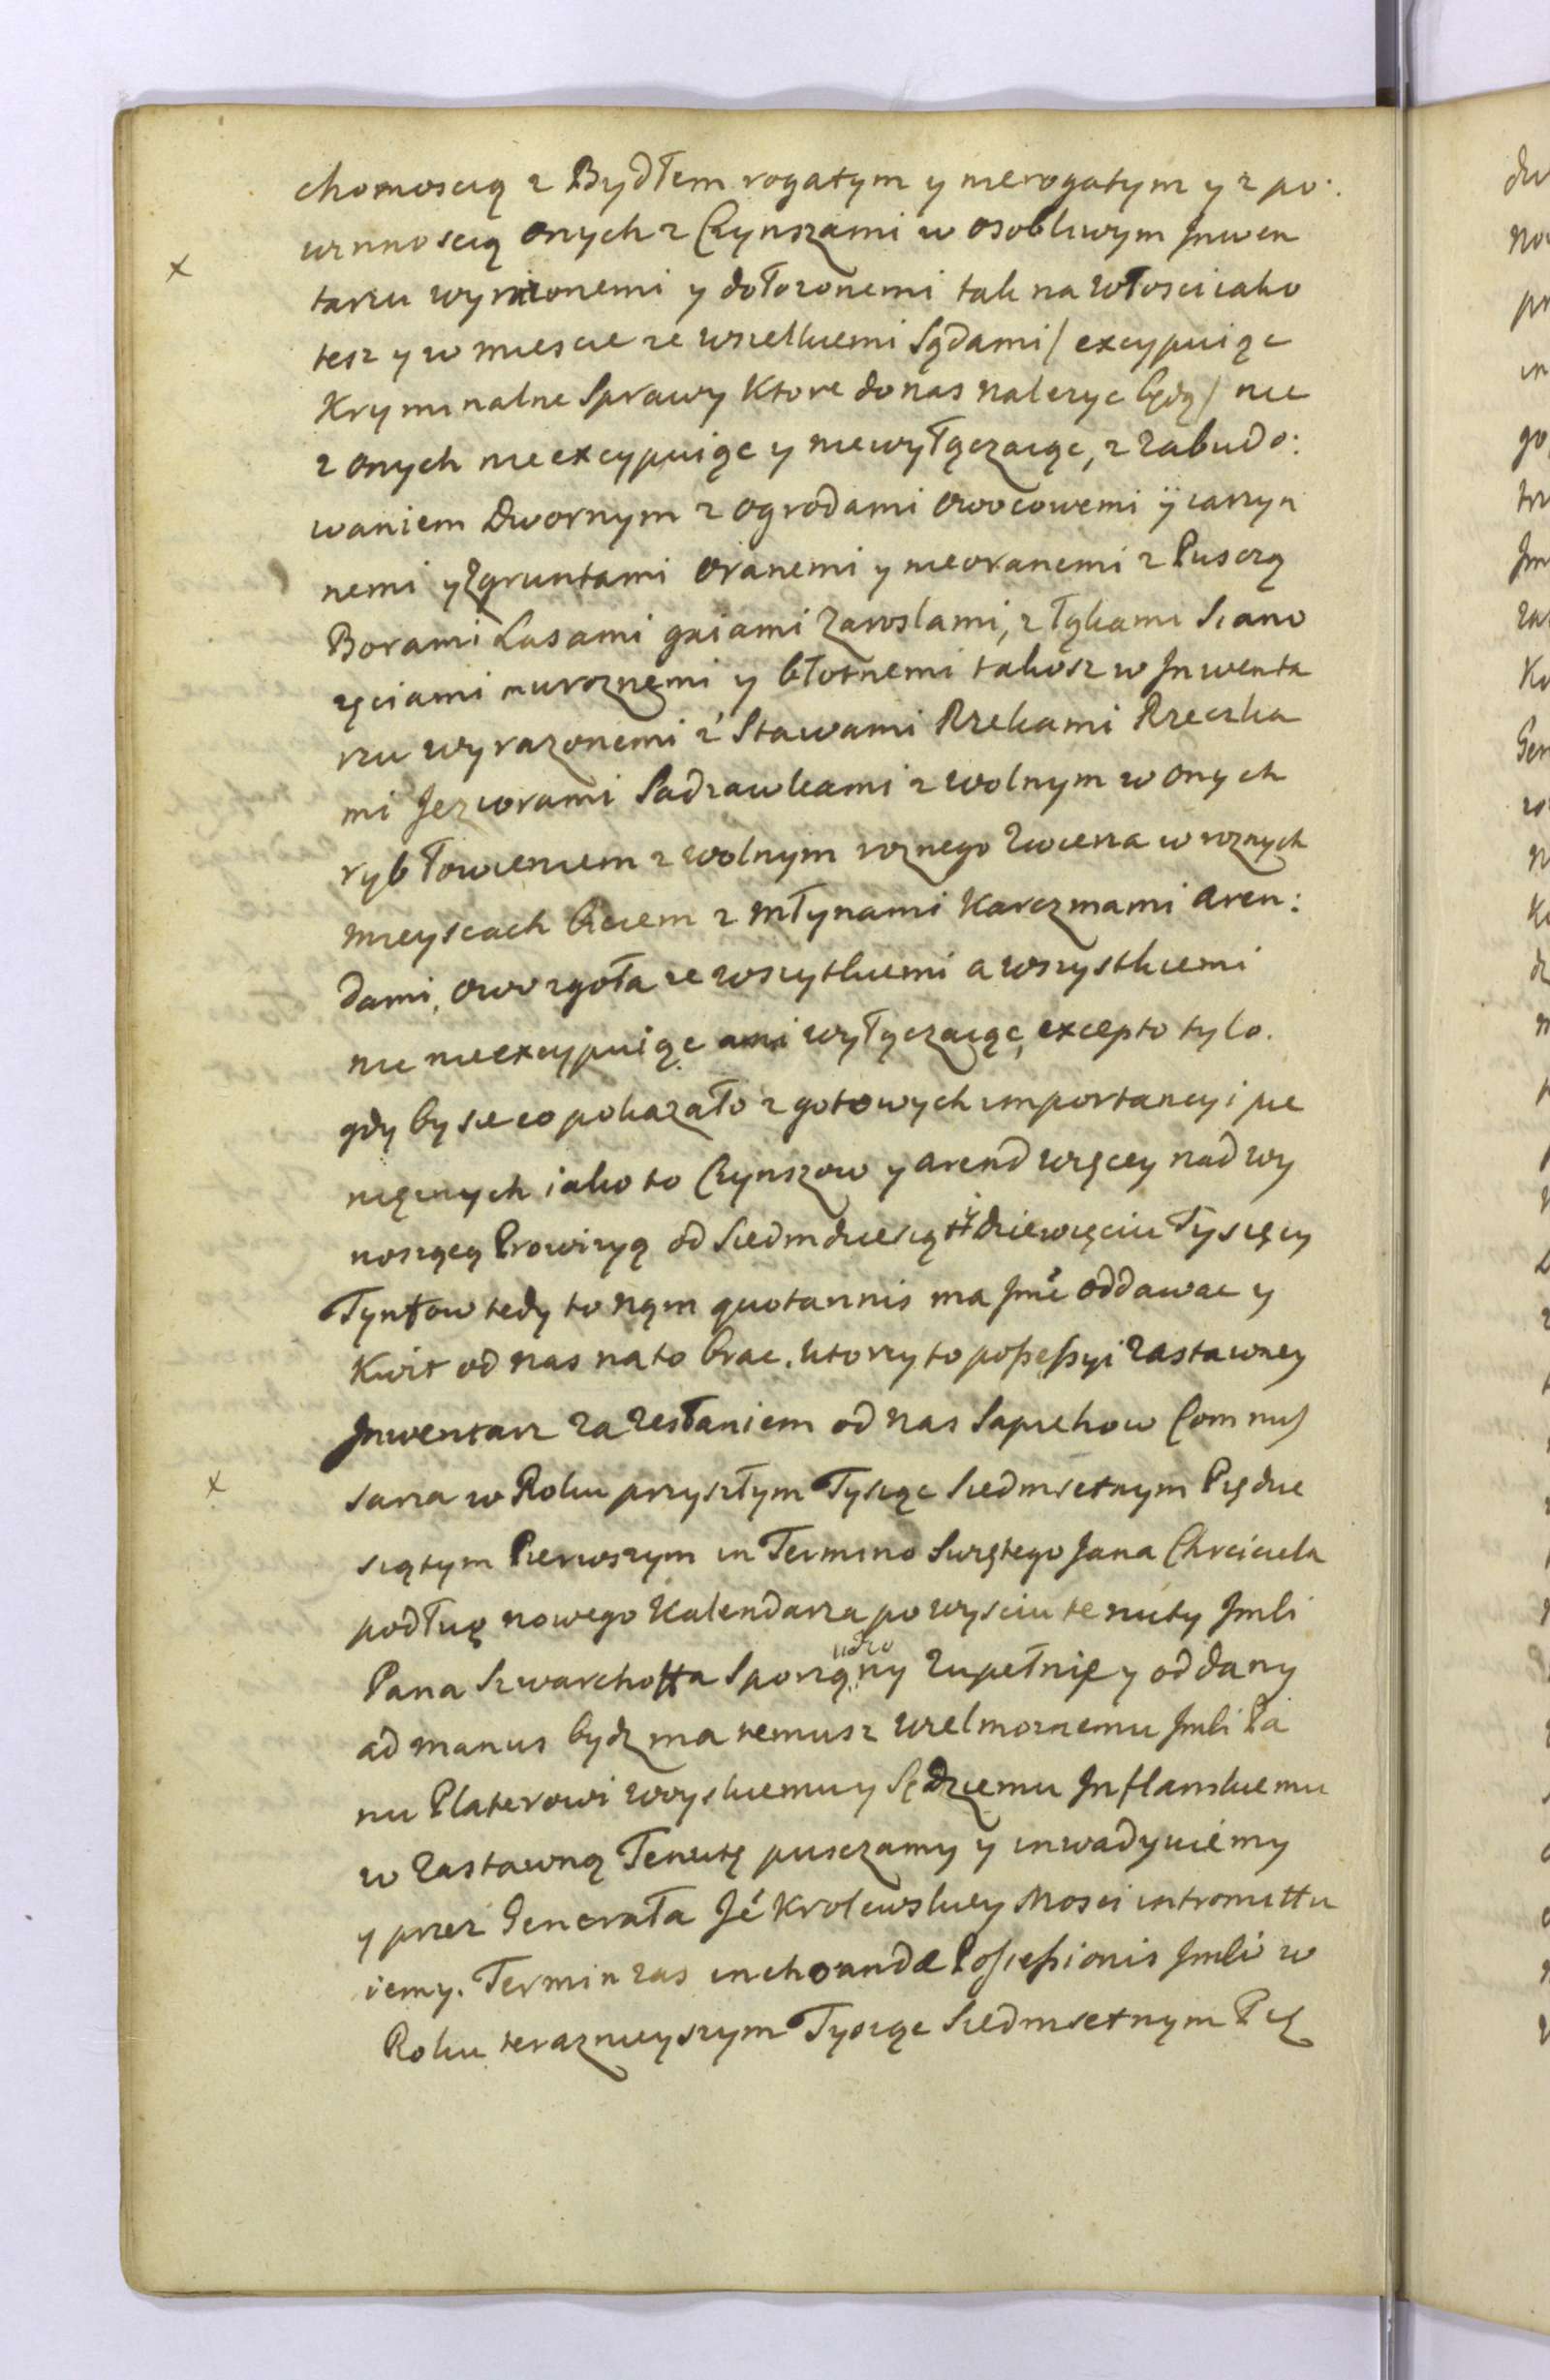 chomoscią z Bydłem rogatym y nierogatym y z po:
winnoscią onych z Czynszami w osobliwym Inwen
tarzu wyrażonemi y dołozonemi tak na włosci iako
tesz y w miescie ze wszelkiemi Sądami / excypuiąc
Kryminalne Sprawy ktore do nas nalezyc będą / nic
z onych nieexcypuiąc y niewyłączaiąc, z zabudo:
waniem Dwornym z ogrodami owocowemi ÿ iarzyn
nemi y zgruntami oranemi y nieoranemi z Pusczą
Borami Lasami gaiami Zaroslami, z łąkami Siano
zęciami muroznemi y błotnemi takosz w Inwenta
rzu wyrazonemi z Stawami Rzekami Rzeczka
mi Jeziorami Sadzawkami z wolnym w onych
ryb łowieniem z wolnym roznego Zwierza w roznych
mieyscach biciem z Młynami Karczmami Aren:
dami, owo zgoła ze wszytkiemi a wszystkiemi
nic nieexcypuiąc ani wyłączaiąc, excepto tylo.
gdy by sie co pokazało z gotowych importancyi pie
nięznych iako to Czynszow y arend więcey nad wy
noszącą Prowizyą od Siedmdziesiąt y dziewięciu Tysięcy
Tynfow tedy to nąm quotannis ma Jmć oddawac y
Kwit od nas na to brac. ktorzy to possessyi zastawney
Inwentarz za zesłaniem od nas Sapiehow Commis
sarza w Roku przyszłym Tysiąc Siedmsetnym Piędzie
siątym Pierwszym in Termino Swiętego Jana Chrciciela
podług nowego Kalendarza po wysciu tenuty Jmści
Pana Szwarchoffa Sporządzony zupełnie y oddany
ad manus bydz ma temusz Wielmoznemu Jmści Pa
nu Platerowi Woyskiemu y Sędziemu Inflanskiemu
w Zastawną Tenutę pusczamy y inwadyuiemy
y przez Generała Jć Krolewskiey Mosci intromittu
iemy. Termin zas inchoandæ Possessionis Jmści w
Roku teraznieyszym Tysiąc Siedmsetnym Pię